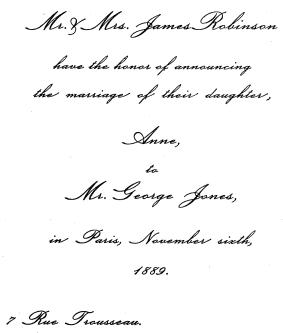 Mr. & Mrs. James Robinson
have the honor of announcing
the marriage of their daughter,
Anne,
to
Mr. George Jones,
in Paris, November sixth,
1889.
7 Rue Trousseau.